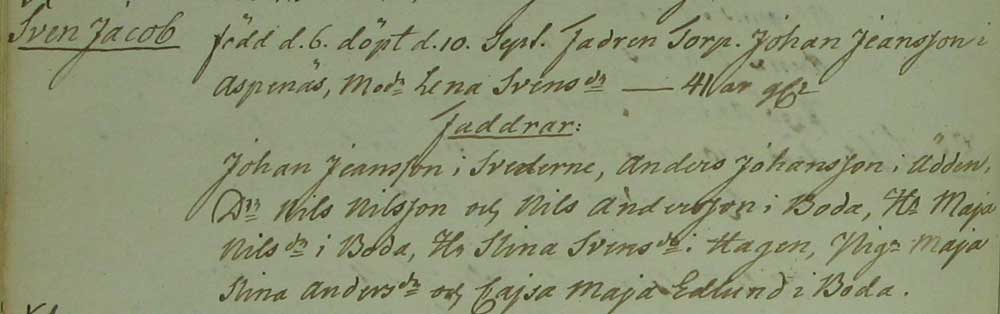 Sven Jacob född d. 6. döpt d. 10. Sept. Fadren Torp. Johan Jeansson i
Aspenäs, Modn Lena Svensdn — 41 år gl
Faddrar:
Johan Jeansson i Svederne, Anders Johansson i Ådden,
Dn Nils Nilsson och Nils Andersson i Boda, H Maja
Nilsdn i Boda, H Stina Svensdn i Hagen, Pign Maja
Stina Andersdn och Cajsa Maja Edlund i Boda.